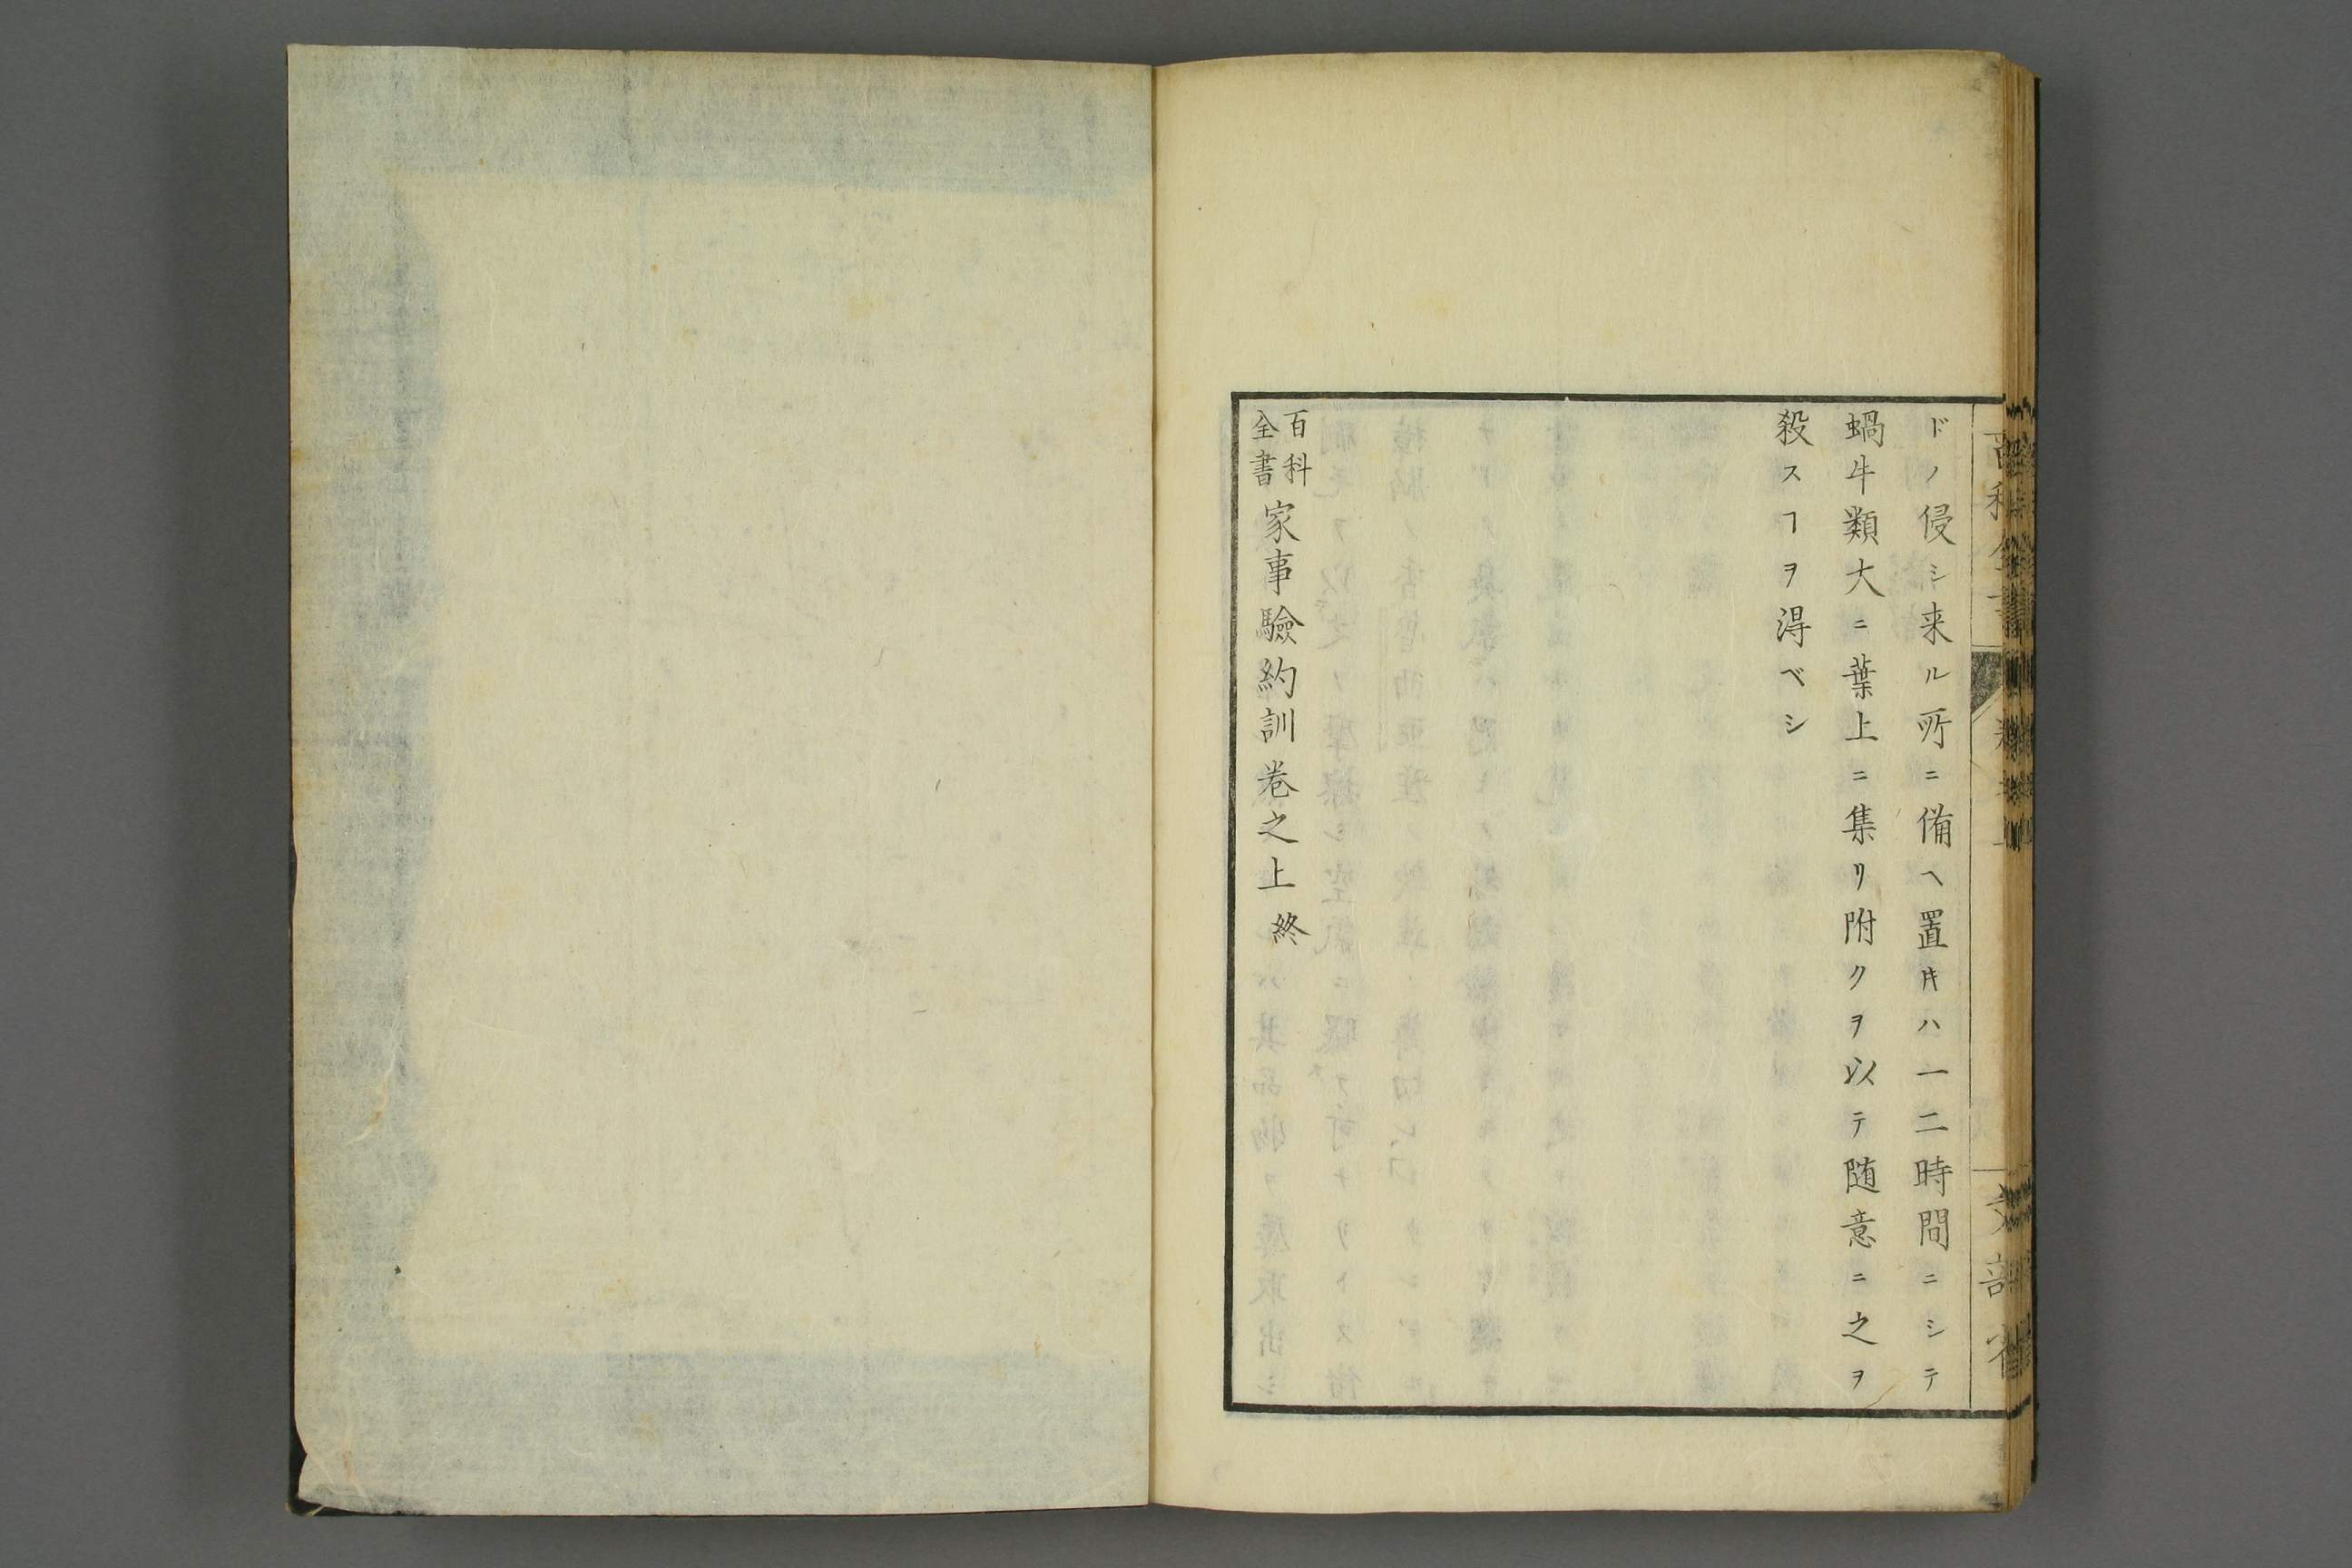 ドノ侵シ来ル所ニ備ヘ置キハ一二時間ニシテ
蝸牛類大ニ葉上ニ集リ附クヲ以テ随意ニ之ヲ
殺スヿヲ得ベシ
百科
全書
家事驗約訓巻之上終
文部省